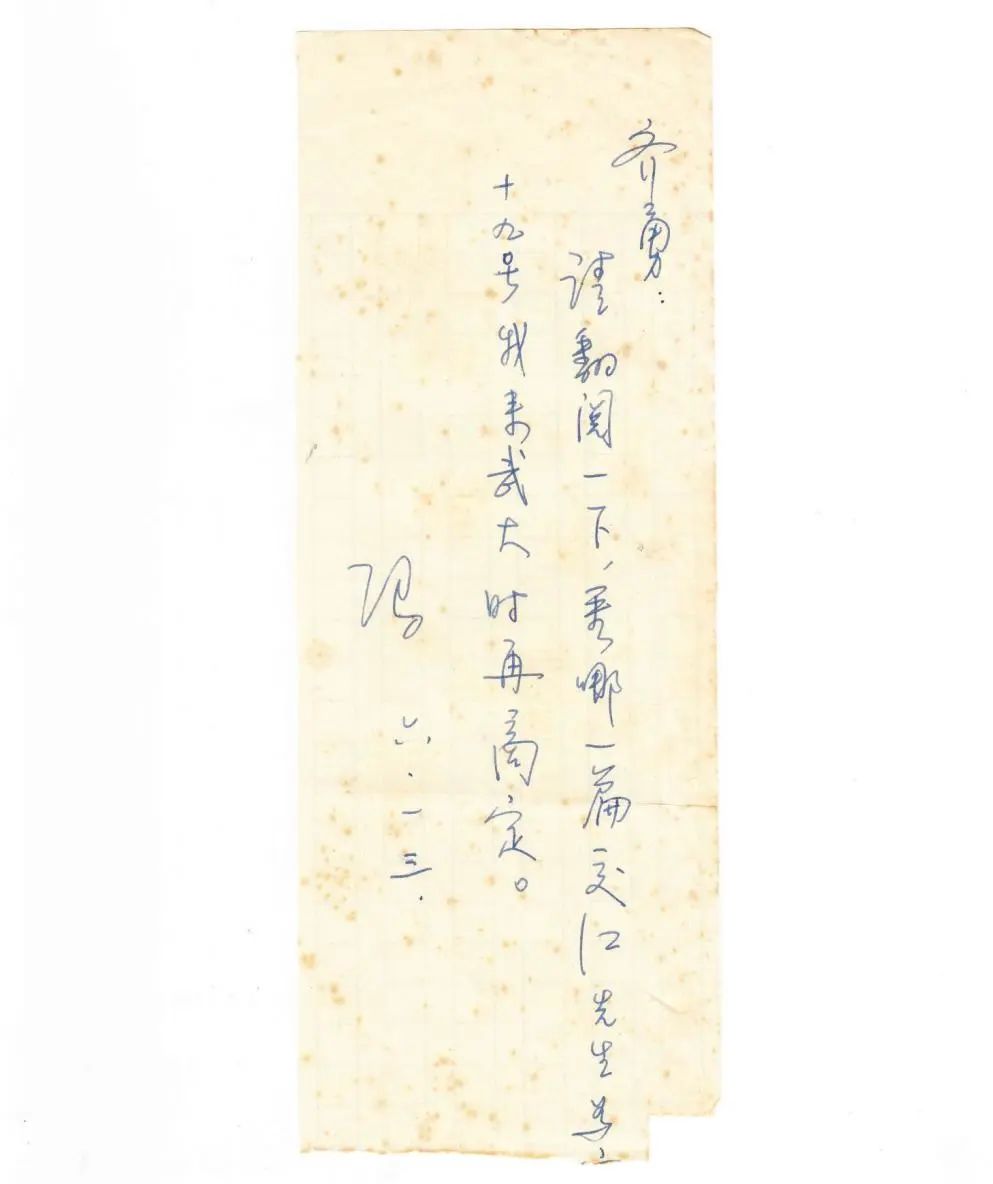 齐勇：
请翻阅一下，看哪一篇交江先生为
十九号我来武大时再商定。
六.一三.